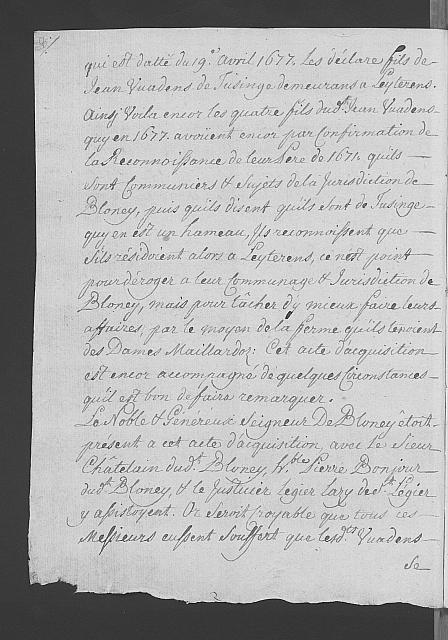 qui est datté du 19.e Avril 1677. Les déclare fils de
Jean Vuadens de Tusinge demeurans a Leyterens.
Ainsj Voila encor les quatre fils dud.t Jean Vuadens
quy en 1677. avoüent encor par Confirmation de
la Reconnoissance de leur Pere de 1671. quils
sont Communiers & Sujets de la Jurisdiction de
Bloney, puis quils disent quils sont de Tusinge
quy en est un hameau, Ils reconnoissent que
sils résidoient alors a Leyterens, ce nest point
pour déroger a leur Communage & Jurisdiction de
Bloney, mais pour tâcher d'y mieux faire leurs
affaires, par le moyen de la ferme quils tenoient
des Dames Maillardoz: Cet acte d'acquisition
est encor accompagné de quelques Circonstances
qu'il est bon de faire remarquer.
Le Noble & Généreux Seigneur De Bloney étoit
present a cet acte d'acquisition, avec le Sieur
Châtelain dud.t Bloney, h.ble Pierre Bonjour
dud.t Bloney, & le Justicier Legier Lary de S.t Légier
y assistoyent. Or seroit croyable que tous ces
Messieurs eussent Souffert que lesd.ts Vuadens
se